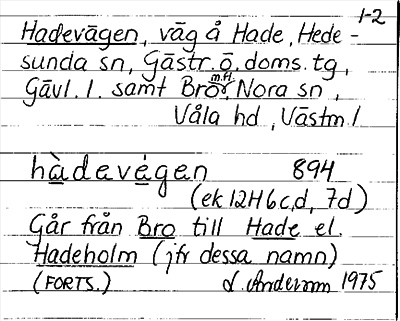 1-2
Hadevägen, väg å Hade, Hede-
sunda sn, Gästr. ö. doms. tg,
Gävl. l. samt Bro m.fl. Nora sn,
Våla hd, Västm. l
hàdevé̱gen 894
(ek 12H6c,d, 7d)
Går från Bro till Hade el.
Hadeholm (jfr dessa namn)
(FORTS.) 1975